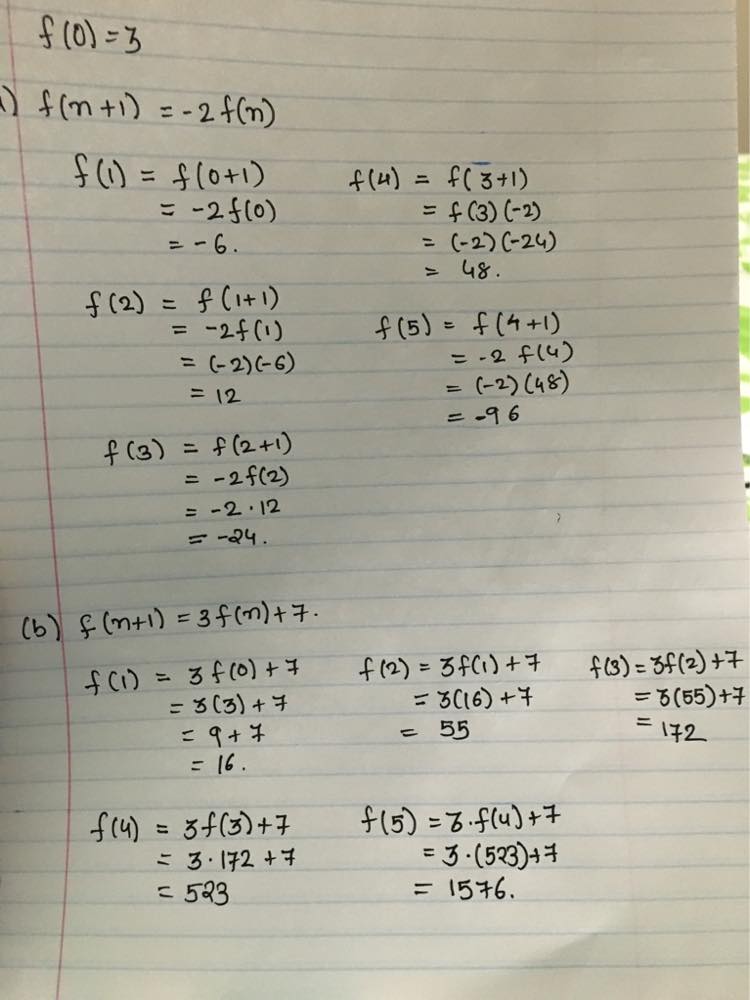 f(0) = 3
) f(n+1) = -2f(n)
f(1) = f(0+1)
= -2f(0)
= -6.
f(2) = f(1+1)
= -2f(1)
= (-2)(-6)
= 12
f(3) = f(2+1)
= -2f(2)
= -2·12
= -24.
f(4) = f(3+1)
= f(3)(-2)
= (-2)(-24)
= 48.
f(5) = f(4+1)
= -2 f(4)
= (-2)(48)
= -96
(b) f(n+1) = 3f(n)+7.
f(1) = 3f(0)+7
= 3(3)+7
= 9+7
= 16.
f(2) = 3f(1)+7
= 3(16)+7
= 55
f(3) = 3f(2)+7
= 3(55)+7
= 172
f(4) = 3f(3)+7
= 3·172+7
= 523
f(5) = 3·f(4)+7
= 3·(523)+7
= 1576.